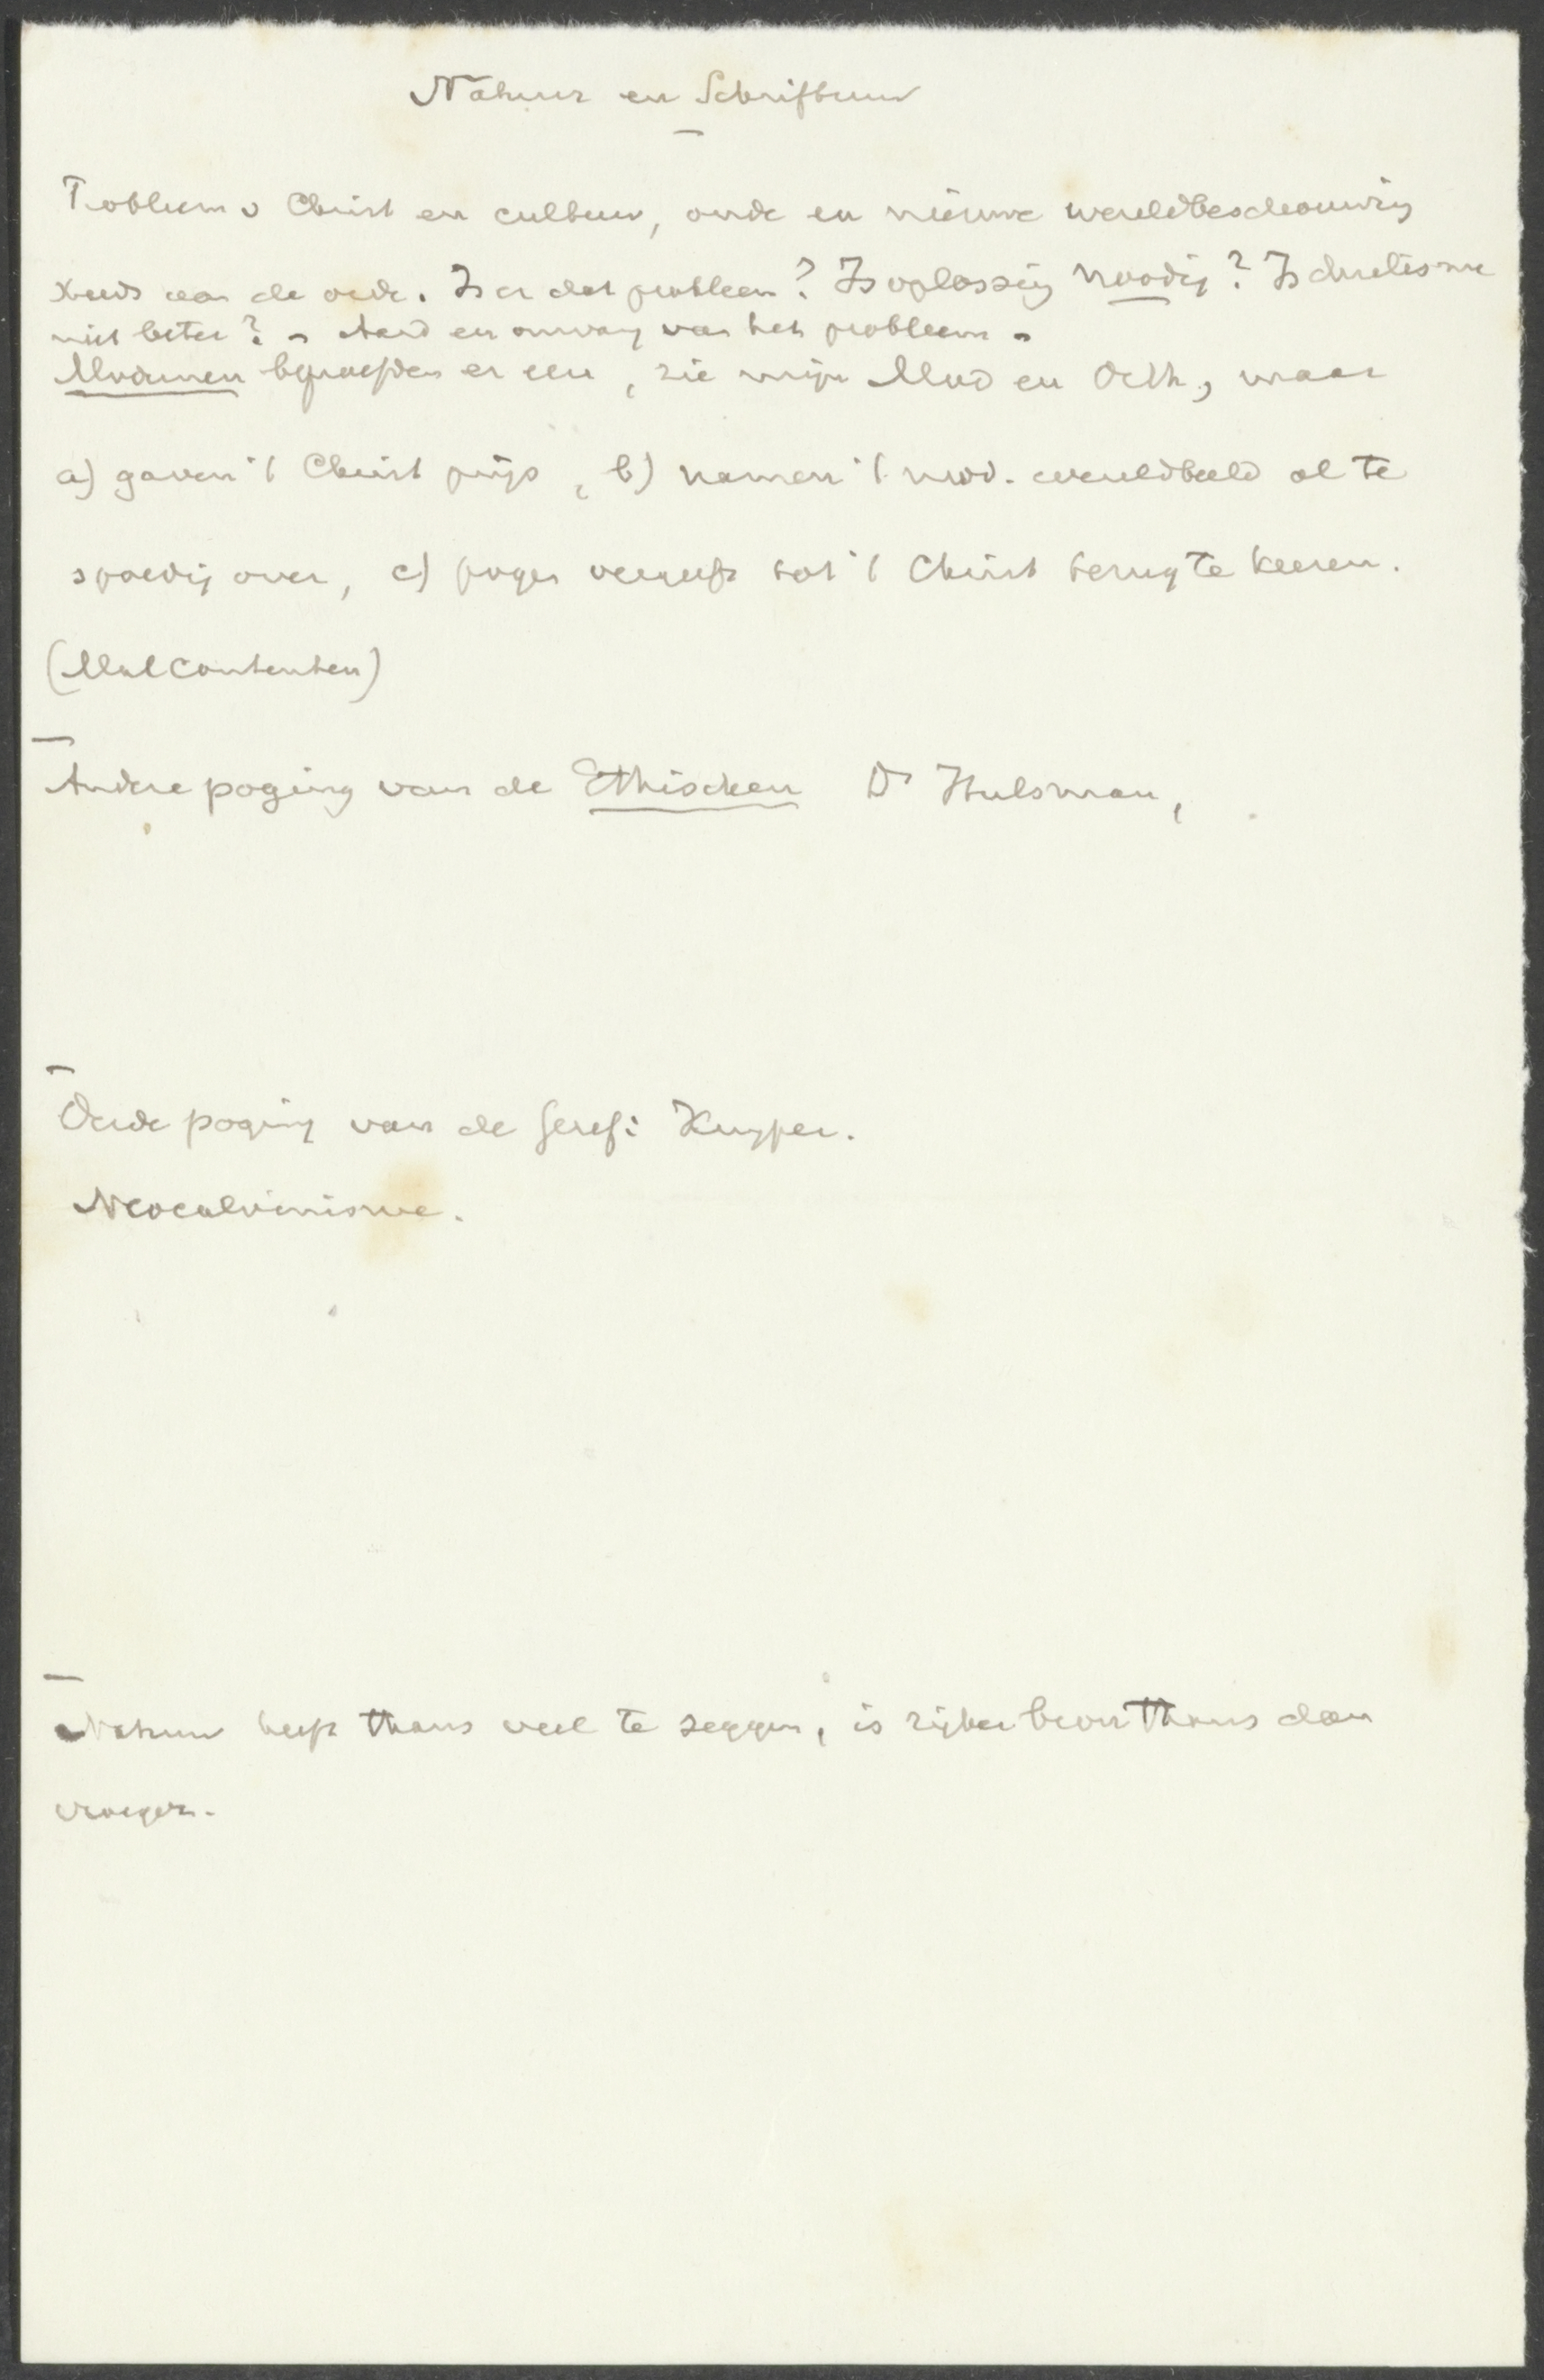 Natuur en Schriftuur
Probleem v Christ en cultuur, oude en nieuwe wereldbeschouwing
steeds aan de orde. Is er dat probleem? Is oplossing noodig? Is dualisme
niet beter? – Aard en omvang van het probleem –
Modernen beproefden er een, zie mijn Mod en Orth, maar
a) gaven 't Christ prijs, b) namen 't mod. wereldbeeld al te
spoedig over, c) pogen vergeefs tot 't Christ terug te keeren.
(Malcontenten)
Andere poging van de Ethischen Dr Hulsman,
Derde poging van de Geref: Kuyper.
Neocalvinisme.
Natuur heeft thans veel te zeggen, is rijker thans dan
vroeger.